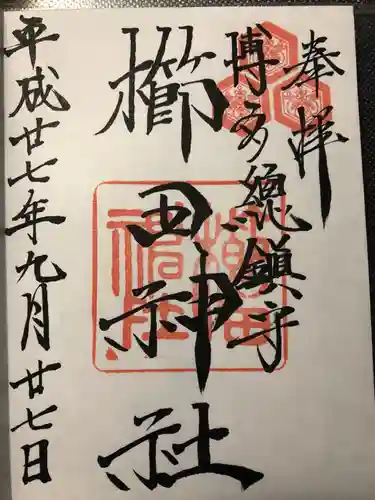 奉拝
博多總鎮守
櫛田神社
平成廿七年九月廿七日